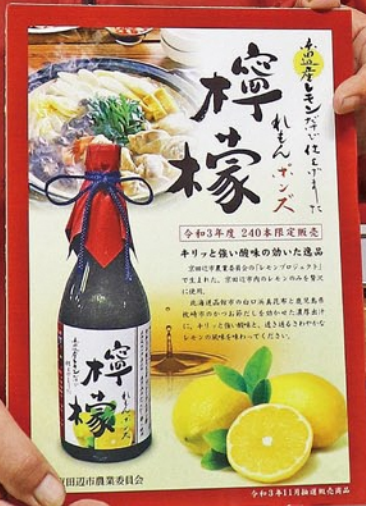 市内産レモンだけで仕上げました
檸檬
れもんポンズ
令和3年度 240本限定販売
キリッと強い酸味の効いた逸品
京田辺市農業委員会の「レモンプロジェクト」
で生まれた、京田辺市内のレモンのみを贅沢
に使用。
北海道函館市の白口浜真昆布と鹿児島県
枕崎市のかつお節だしを効かせた濃厚出汁
に、キリッと強い酸味と、透き通るさわやかな
レモンの風味を味わってください。
檸檬
れもんポンズ
京田辺市農業委員会
令和3年11月抽選販売商品